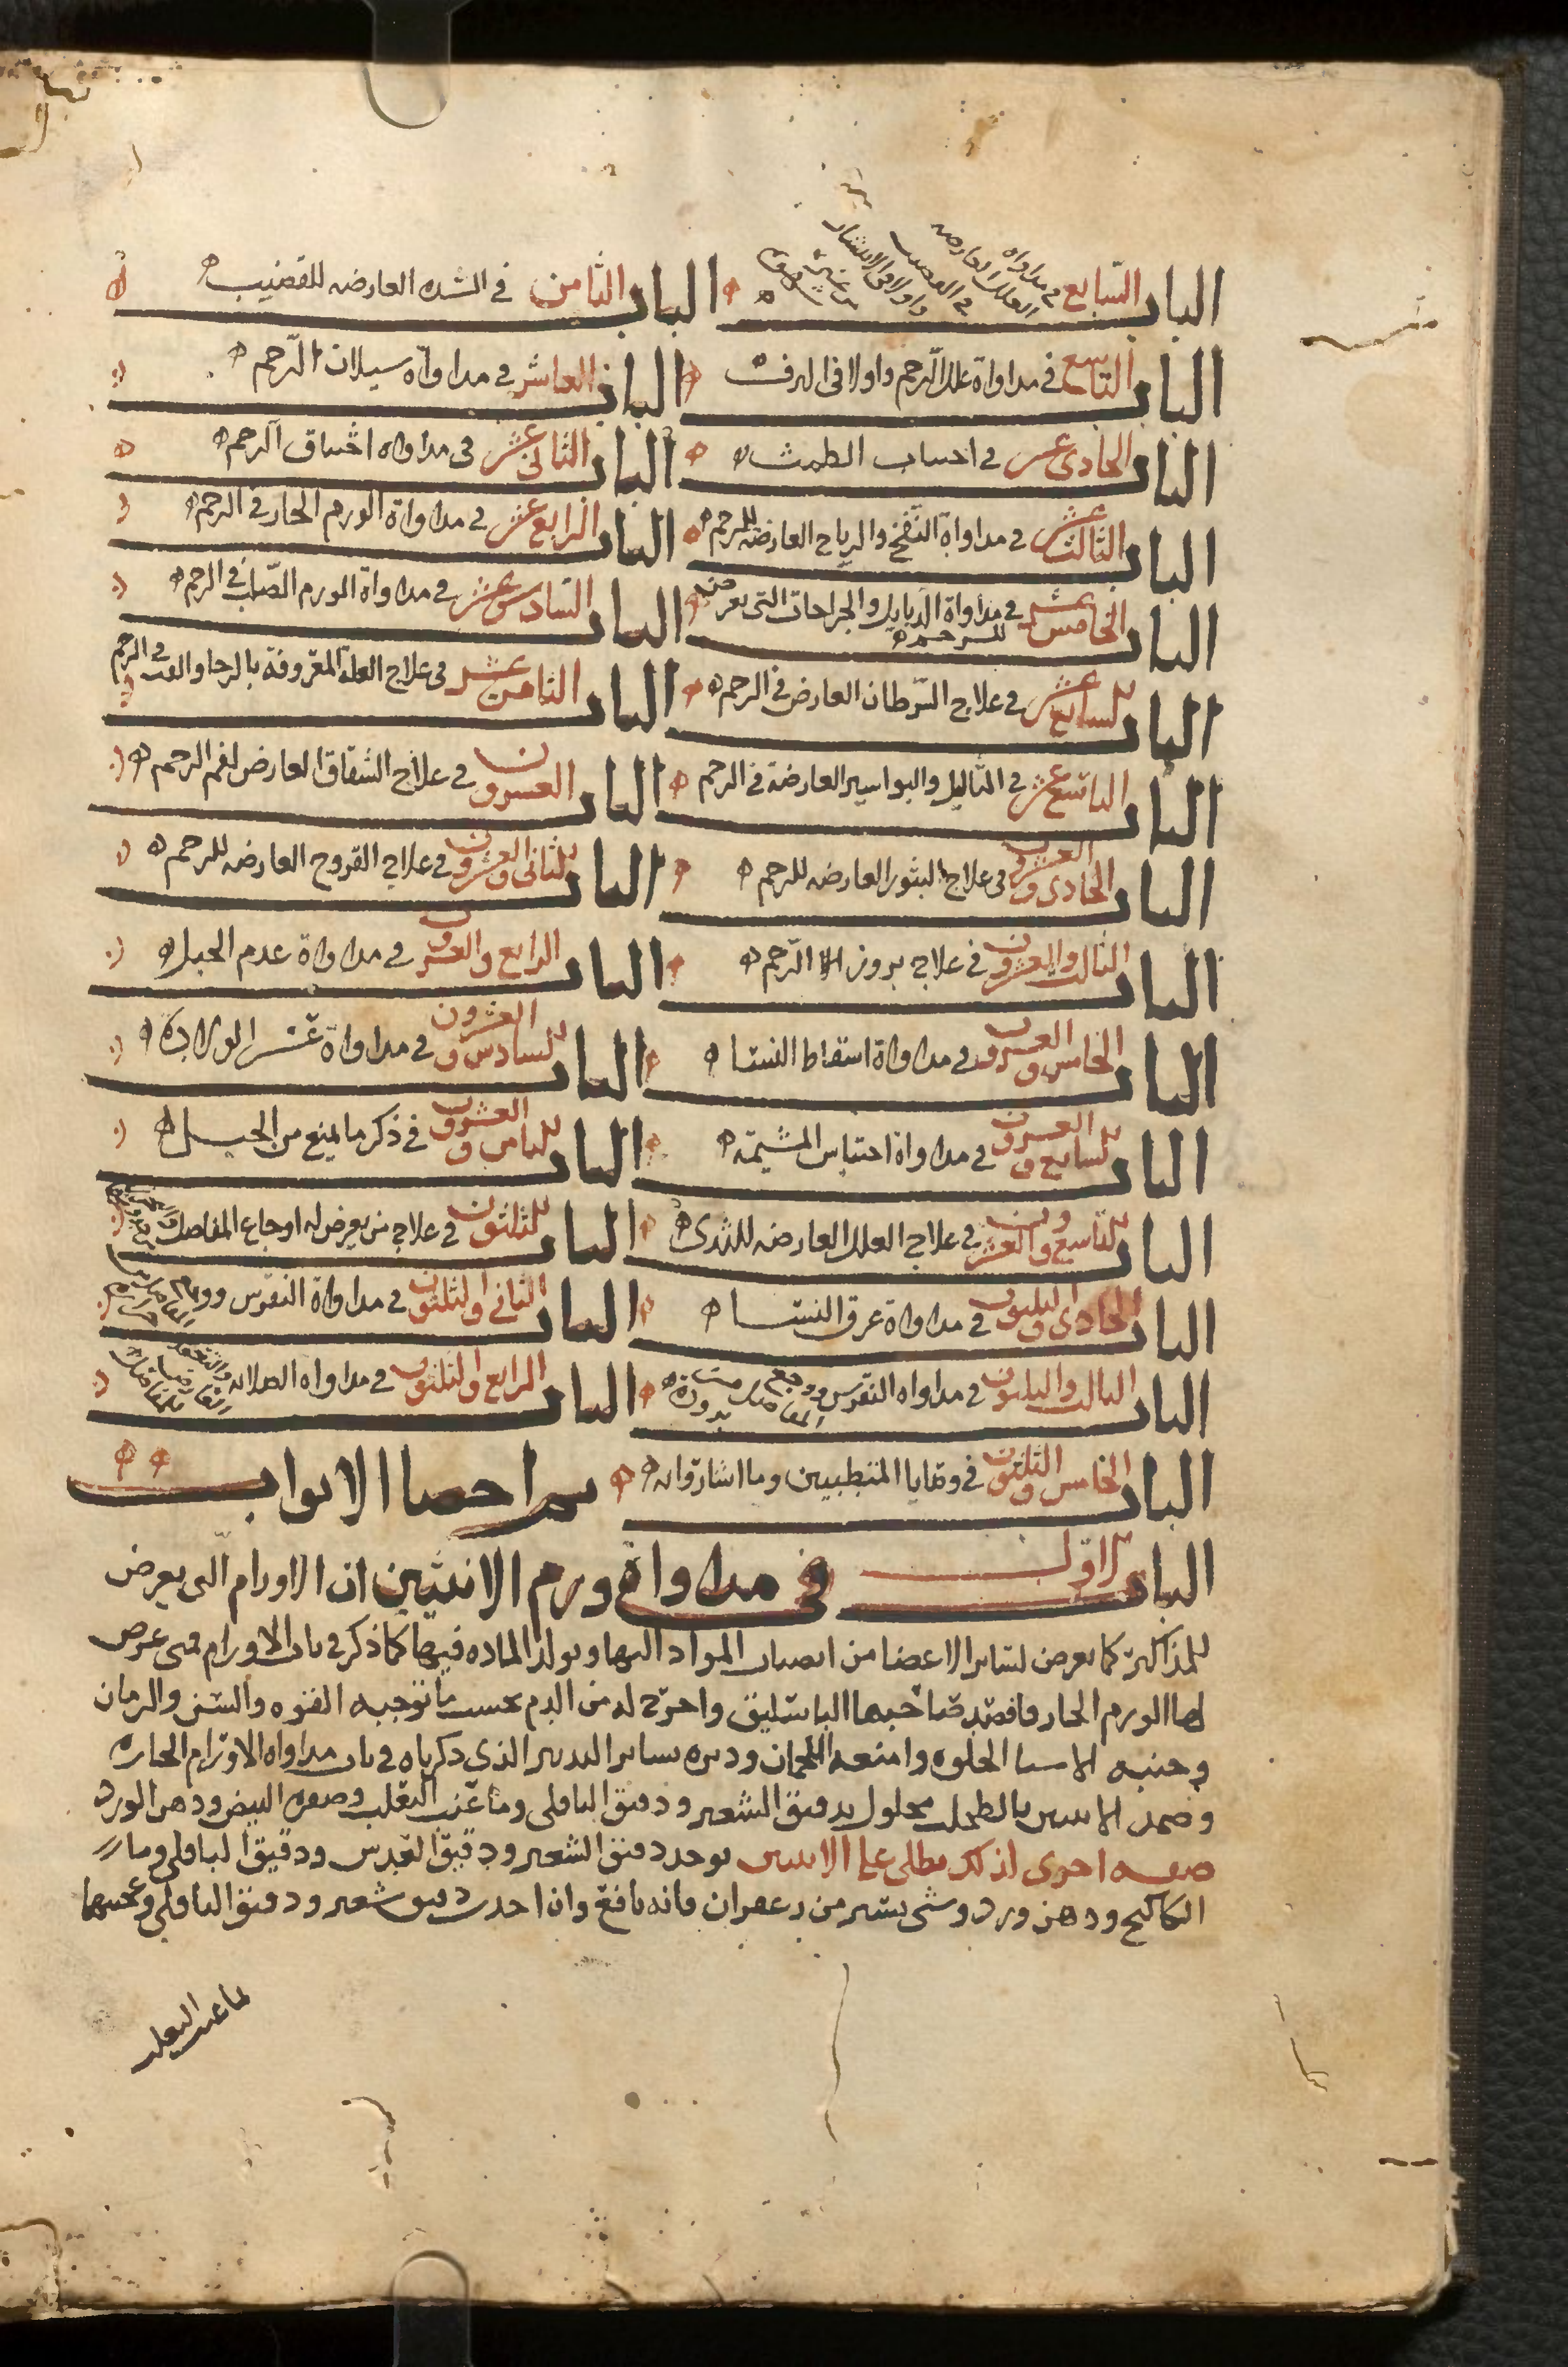 الباب السابع في مداواة العلل العارضه في القضيب واولا في الانتشار من غير شهوة الباب الثامن في السده العارضه للقضيب
الباب التاسع في مداواة علل الرحم واولا في النزف الباب العاشر في مداواة سيلان الرحم
الباب الحادى عشر في احتباس الطمث الباب الثانى عشر فى مداواه اختناق الرحم
الباب الثالث عشر في مداواة النفخ والرياح العارضه للرحم الباب الرابع عشر في مداواة الورم الحار في الرحم
الباب الخامس عشر في مداواة الدبايل والجراحات التى تعرض للرحم الباب السادس عشر في مداواة الورم الصلب في الرحم
الباب السابع عشر في علاج السرطان العارض في الرحم الباب الثامن عشر فى علاج العلة المعروفة بالرحا في الرحم
الباب التاسع عشر في الثاليل والبواسير العارضة في الرحم الباب العشرون في علاج الشقاق العارض لفم الرحم
الباب الحادى والعشرون فى علاج البثور العارضه للرحم الباب الثانى والعشرون في علاج القروح العارضه للرحم
الباب الثالث والعشرون في علاج بروز الرحم الباب الرابع والعشرون في مداواة عدم الحبل
الباب الخامس والعشرون في مداواة اسقاط النسا الباب السادس والعشرون في مداواة عسر الولادة
الباب السابع والعشرون في مداواة احتباس المشيمه الباب الثامن والعشرون في ذكر ما يمنع من الحبل
الباب التاسع والعشرون في علاج العلل العارضه للثدى الباب الثلثون في علاج من يعرض له اوجاع المفاصل
الباب الحادى والثلثون في مداواة عرق النسا الباب الثانى والثلثون في مداواة النقرس ووجع المفاصل
الباب الثالث والثلثون في مداواه النقرس ووجع المفاصل من برودة الباب الرابع والثلثون في مداواه الصلابه والتعقد العارض للمفاصل
الباب الخامس والثلثون في وصايا المتطببين وما اشاروا به تم احصا الابواب
الباب الاول في مداواة ورم الانثيين ان الاورام التى يعرض
للمذاكير كما يعرض لساير الاعضا من انصباب المواد اليها وتولد الماده فيها كما ذكر في باب الاورام فمتى عرض
لها الورم الحار فافصد صاحبها الباسليق واخرج له من الدم بحسب ما توجبه القوه والسن والزمان
وجنبه الاشيا الحلوه وامنعه اللحمان ودبره بساير التدبير الذى ذكرناه في باب مداواه الاورام الحاره
وضمد الانثيين بالطحلب محلول بدقيق الشعير ودقيق الباقلى وما عنب الثعلب وصفره البيض ودهن الورد
صفه اخرى لذلك يطلى على الانثيين يوخذ دقيق الشعير ودقيق العدس ودقيق الباقلى وما
الكاكنج ودهن ورد وشى يسير من زعفران فانه نافع وان اخذت دقيق شعير ودقيق الباقلى وعجنتهما
بما عنب الثعلب